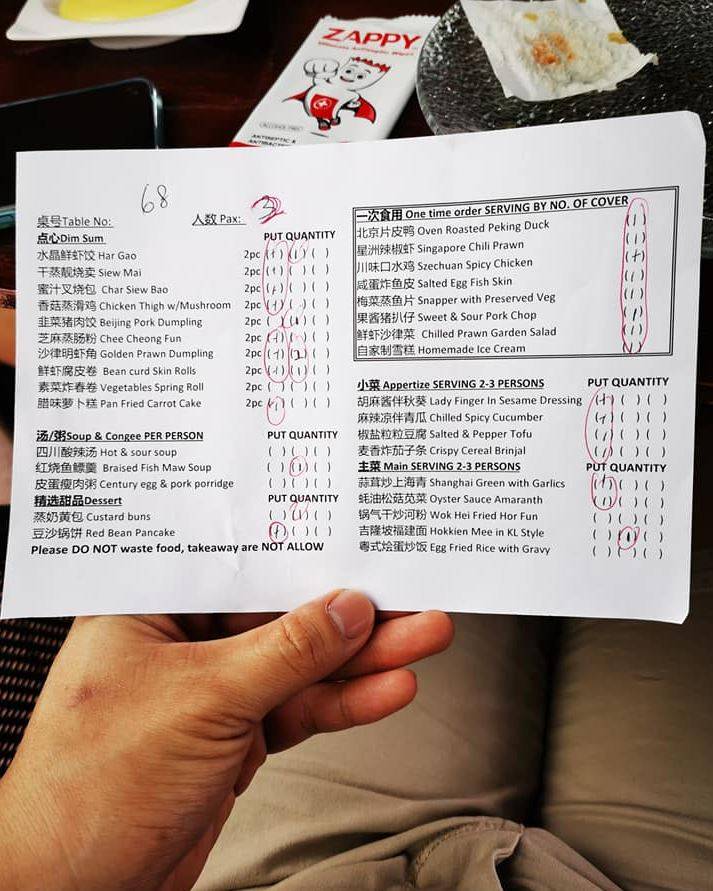 ZAPPY
Ultimate Antiseptic Wipes
ALCOHOL FREE
ANTISEPTIC &
桌号Table No: 68
人数 Pax: 3
点心Dim Sum PUT QUANTITY
水晶鲜虾饺 Har Gao 2pc (1) (1) ( )
干蒸靓烧卖 Siew Mai 2pc (1) ( ) ( )
蜜汁叉烧包 Char Siew Bao 2pc (1) ( ) ( )
香菇蒸滑鸡 Chicken Thigh w/Mushroom 2pc (1) ( ) ( )
韭菜猪肉饺 Beijing Pork Dumpling 2pc
芝麻蒸肠粉 Chee Cheong Fun 2pc
沙律明虾角 Golden Prawn Dumpling 2pc
鲜虾腐皮卷 Bean curd Skin Rolls 2pc
素菜炸春卷 Vegetables Spring Roll 2pc
腊味萝卜糕 Pan Fried Carrot Cake 2pc
汤/粥Soup & Congee PER PERSON PUT QUANTITY
四川酸辣汤 Hot & sour soup ( ) ( ) ( )
红烧鱼鳔羹 Braised Fish Maw Soup ( ) (1) ( )
皮蛋瘦肉粥 Century egg & pork porridge ( ) ( ) ( )
精选甜品Dessert PUT QUANTITY
蒸奶黄包 Custard buns
豆沙锅饼 Red Bean Pancake
Please DO NOT waste food, takeaway are NOT ALLOW
一次食用 One time order SERVING BY NO. OF COVER
北京片皮鸭 Oven Roasted Peking Duck
星洲辣椒虾 Singapore Chili Prawn
川味口水鸡 Szechuan Spicy Chicken
咸蛋炸鱼皮 Salted Egg Fish Skin
梅菜蒸鱼片 Snapper with Preserved Veg
果酱猪扒仔 Sweet & Sour Pork Chop
鲜虾沙律菜 Chilled Prawn Garden Salad
自家制雪糕 Homemade Ice Cream
小菜 Appertize SERVING 2-3 PERSONS PUT QUANTITY
胡麻酱伴秋葵 Lady Finger In Sesame Dressing
麻辣凉伴青瓜 Chilled Spicy Cucumber
椒盐粒粒豆腐 Salted & Pepper Tofu
麦香炸茄子条 Crispy Cereal Brinjal
主菜 Main SERVING 2-3 PERSONS PUT QUANTITY
蒜茸炒上海青 Shanghai Green with Garlics
蚝油松菇苋菜 Oyster Sauce Amaranth
锅气干炒河粉 Wok Hei Fried Hor Fun
吉隆坡福建面 Hokkien Mee in KL Style
粤式烩蛋炒饭 Egg Fried Rice with Gravy